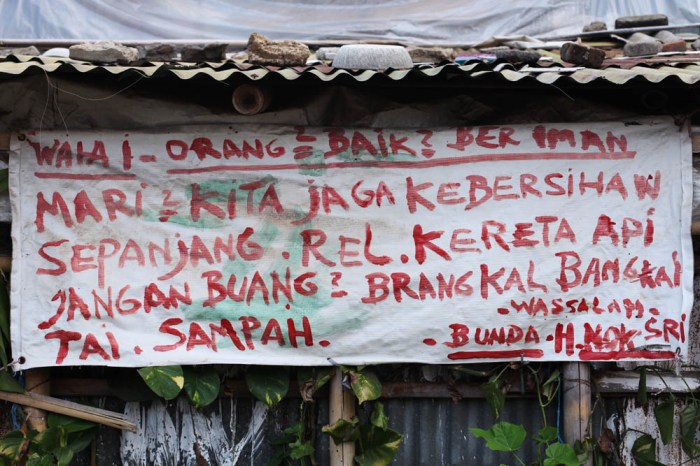 WAHAI - ORANG2 BAIK2 BER IMAN
MARI2 KITA JAGA KEBERSIHAN
SEPANJANG . REL . KERETA API
JANGAN BUANG2 BRANGKAL BANGKAI
- WASSALAM -
TAI . SAMPAH . - BUNDA . H. NOK SRI